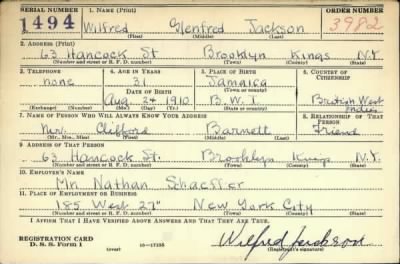 SERIAL NUMBER 1. NAME (Print) ORDER NUMBER
1494 Wilfred Glenfred Jackson 3982
(First) (Middle) (Last)
2. ADDRESS (Print)
63 Hancock St Brooklyn Kings N.Y.
(Number and street or R. F. D. number) (Town) (County) (State)
3. TELEPHONE 4. AGE IN YEARS 5. PLACE OF BIRTH 6. COUNTRY OF CITIZENSHIP
none 31 Jamaica
DATE OF BIRTH (Town or county)
Aug. 24 1910 B.W.I. British West Indies
(Exchange) (Number) (Mo.) (Day) (Yr.) (State or country)
7. NAME OF PERSON WHO WILL ALWAYS KNOW YOUR ADDRESS 8. RELATIONSHIP OF THAT PERSON
Clifford Barnett Friend
(Mr., Mrs., Miss) (First) (Middle) (Last)
9. ADDRESS OF THAT PERSON
63 Hancock St. Brooklyn Kings N.Y.
(Number and street or R. F. D. number) (Town) (County) (State)
10. EMPLOYER'S NAME
Mr. Nathan Schaeffer
11. PLACE OF EMPLOYMENT OR BUSINESS
185 West 27" New York City
(Number and street or R. F. D. number) (Town) (County) (State)
I AFFIRM THAT I HAVE VERIFIED ABOVE ANSWERS AND THAT THEY ARE TRUE.
REGISTRATION CARD
D. S. S. Form 1 (over) 16—17105 Wilfred Jackson
(Registrant's signature)